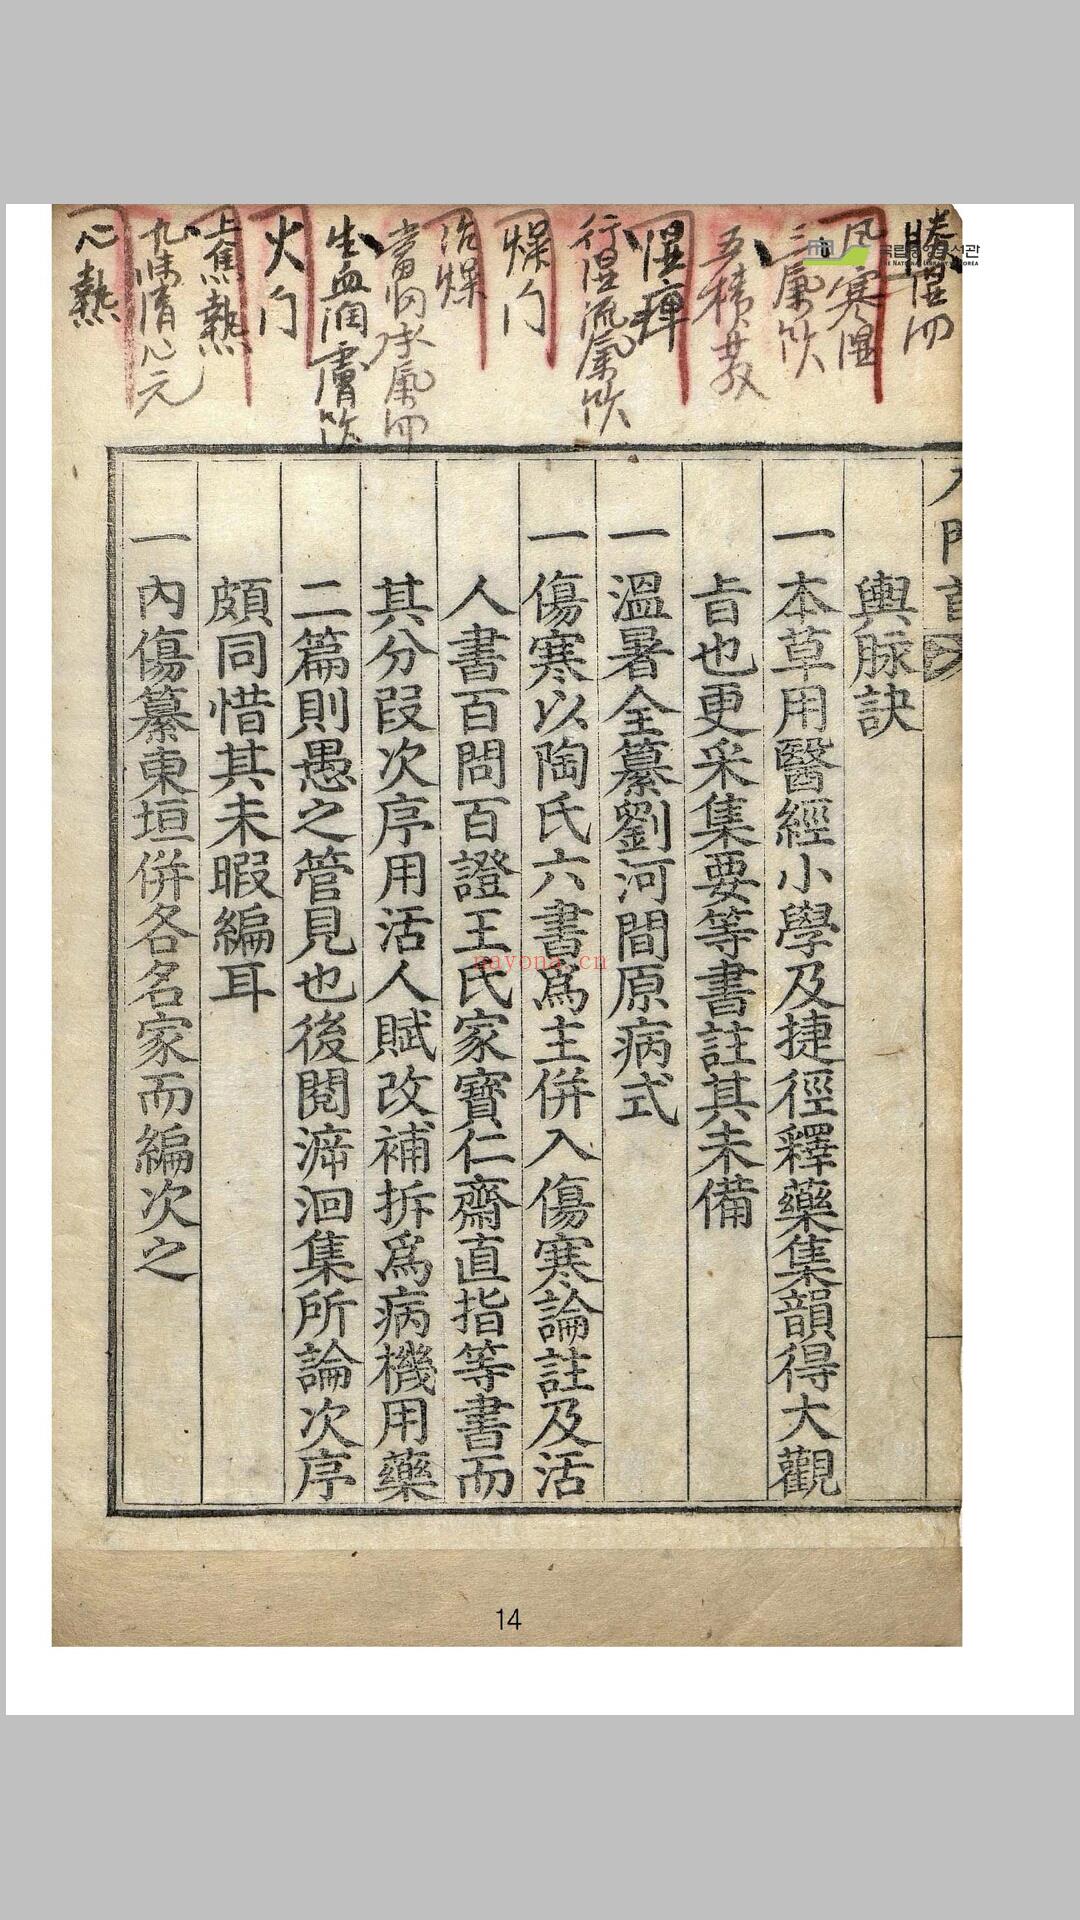 勝湿
風寒湿
三氣飮
五積散
湿痺
行湿流氣飮
燥门
治燥
當归承氣
生血润膚飮
火门
上焦熱
九味清心元
心熱
국립중앙도서관
THE NATIONAL LIBRARY OF KOREA
入門首
輿脉訣
一本草用醫經小學及捷徑釋藥集韻得大觀
㫖也更采集要等書註其未備
一溫暑全纂劉河間原病式
一傷寒以陶氏六書爲主併入傷寒論註及活
人書百問百證王氏家寶仁齋直指等書而
其分段次序用活人賦改補拆爲病機用藥
二篇則愚之管見也後閱泝洄集所論次序
頗同惜其未暇編耳
一內傷纂東垣併各名家而編次之
nayona.cn
14